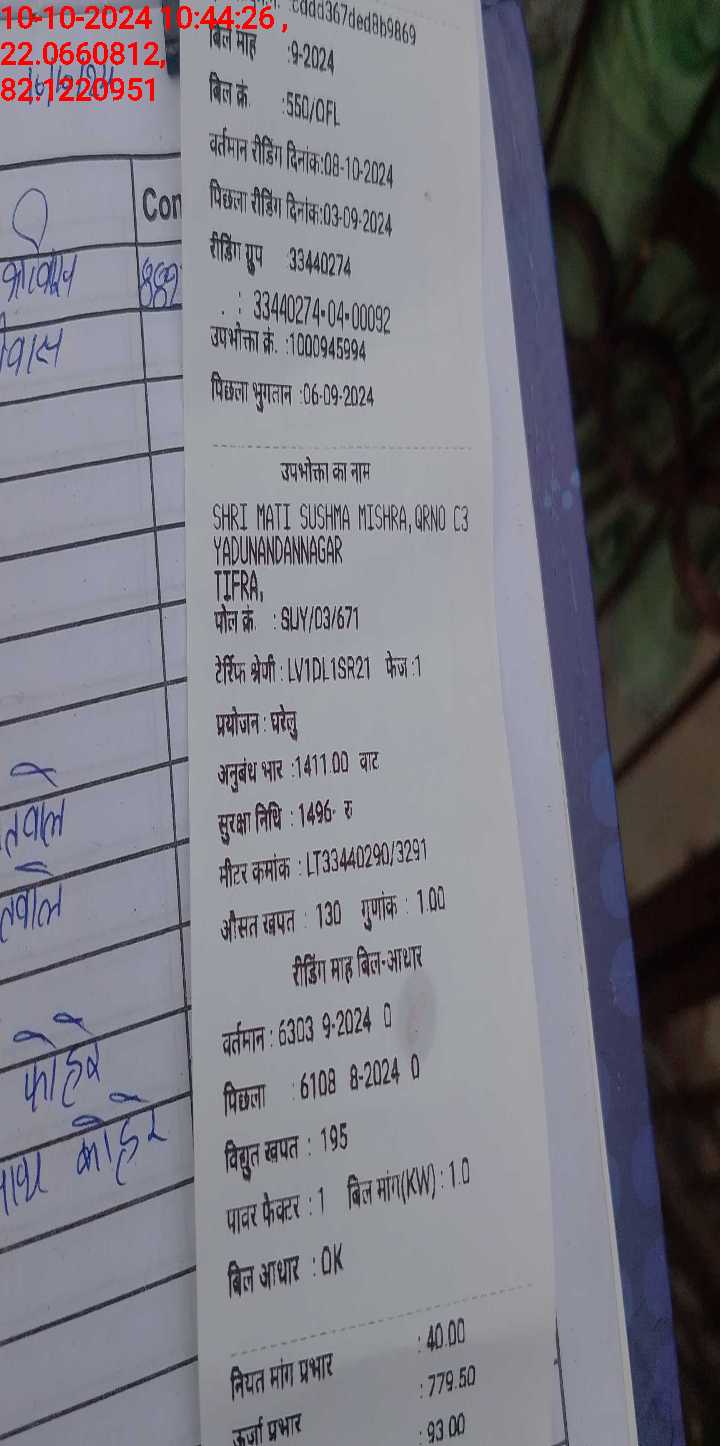 10-10-2024 10:44:26 ,
22.0660812,
82.1220951
cddd367ded8b9869
बिल माह :9-2024
बिल क्रं. :550/OFL
वर्तमान रीडिंग दिनांक:08-10-2024
पिछला रीडिंग दिनांक:03-09-2024
रीडिंग ग्रुप 33440274
. : 33440274-04-00092
उपभोक्ता क्रं. :1000945994
पिछला भुगतान :06-09-2024
उपभोक्ता का नाम
SHRI MATI SUSHMA MISHRA,QRNO C3
YADUNANDANNAGAR
TIFRA,
पोल क्रं. : SUY/03/671
टेर्रिफ श्रेणी : LV1DL1SR21 फेज :1
प्रयोजन : घरेलु
अनुबंध भार :1411.00 वाट
सुरक्षा निधि : 1496- रु
मीटर कमांक : LT33440290/3291
औसत खपत : 130 गुणांक : 1.00
रीडिंग माह बिल-आधार
वर्तमान : 6303 9-2024 0
पिछला :6108 8-2024 0
विद्युत खपत : 195
पावर फेक्टर : 1 बिल मांग(KW) : 1.0
बिल आधार : OK
नियत मांग प्रभार : 40.00
ऊर्जा प्रभार : 779.50
: 93.00
Con
तवाले
तवाले